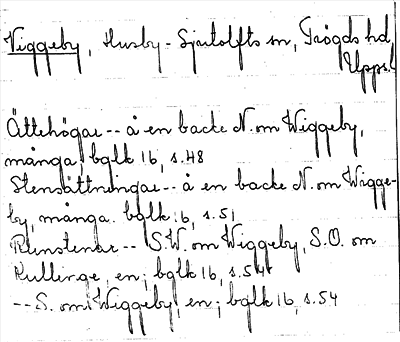 Viggeby, Husby-Sjutolfts sn, Trögds hd,
Upps.l
Ättehögar -- å en backe N. om Wiggeby,
många, bglk 16, s.48
Stensättningar -- å en backe N. om Wigge-
by, många. bglk 16, s.51
Runstenar -- S.W. om Wiggeby, S.O. om
Kullinge, en; bglk 16, s.54
-- S. om Wiggeby, en; bglk 16, s.54